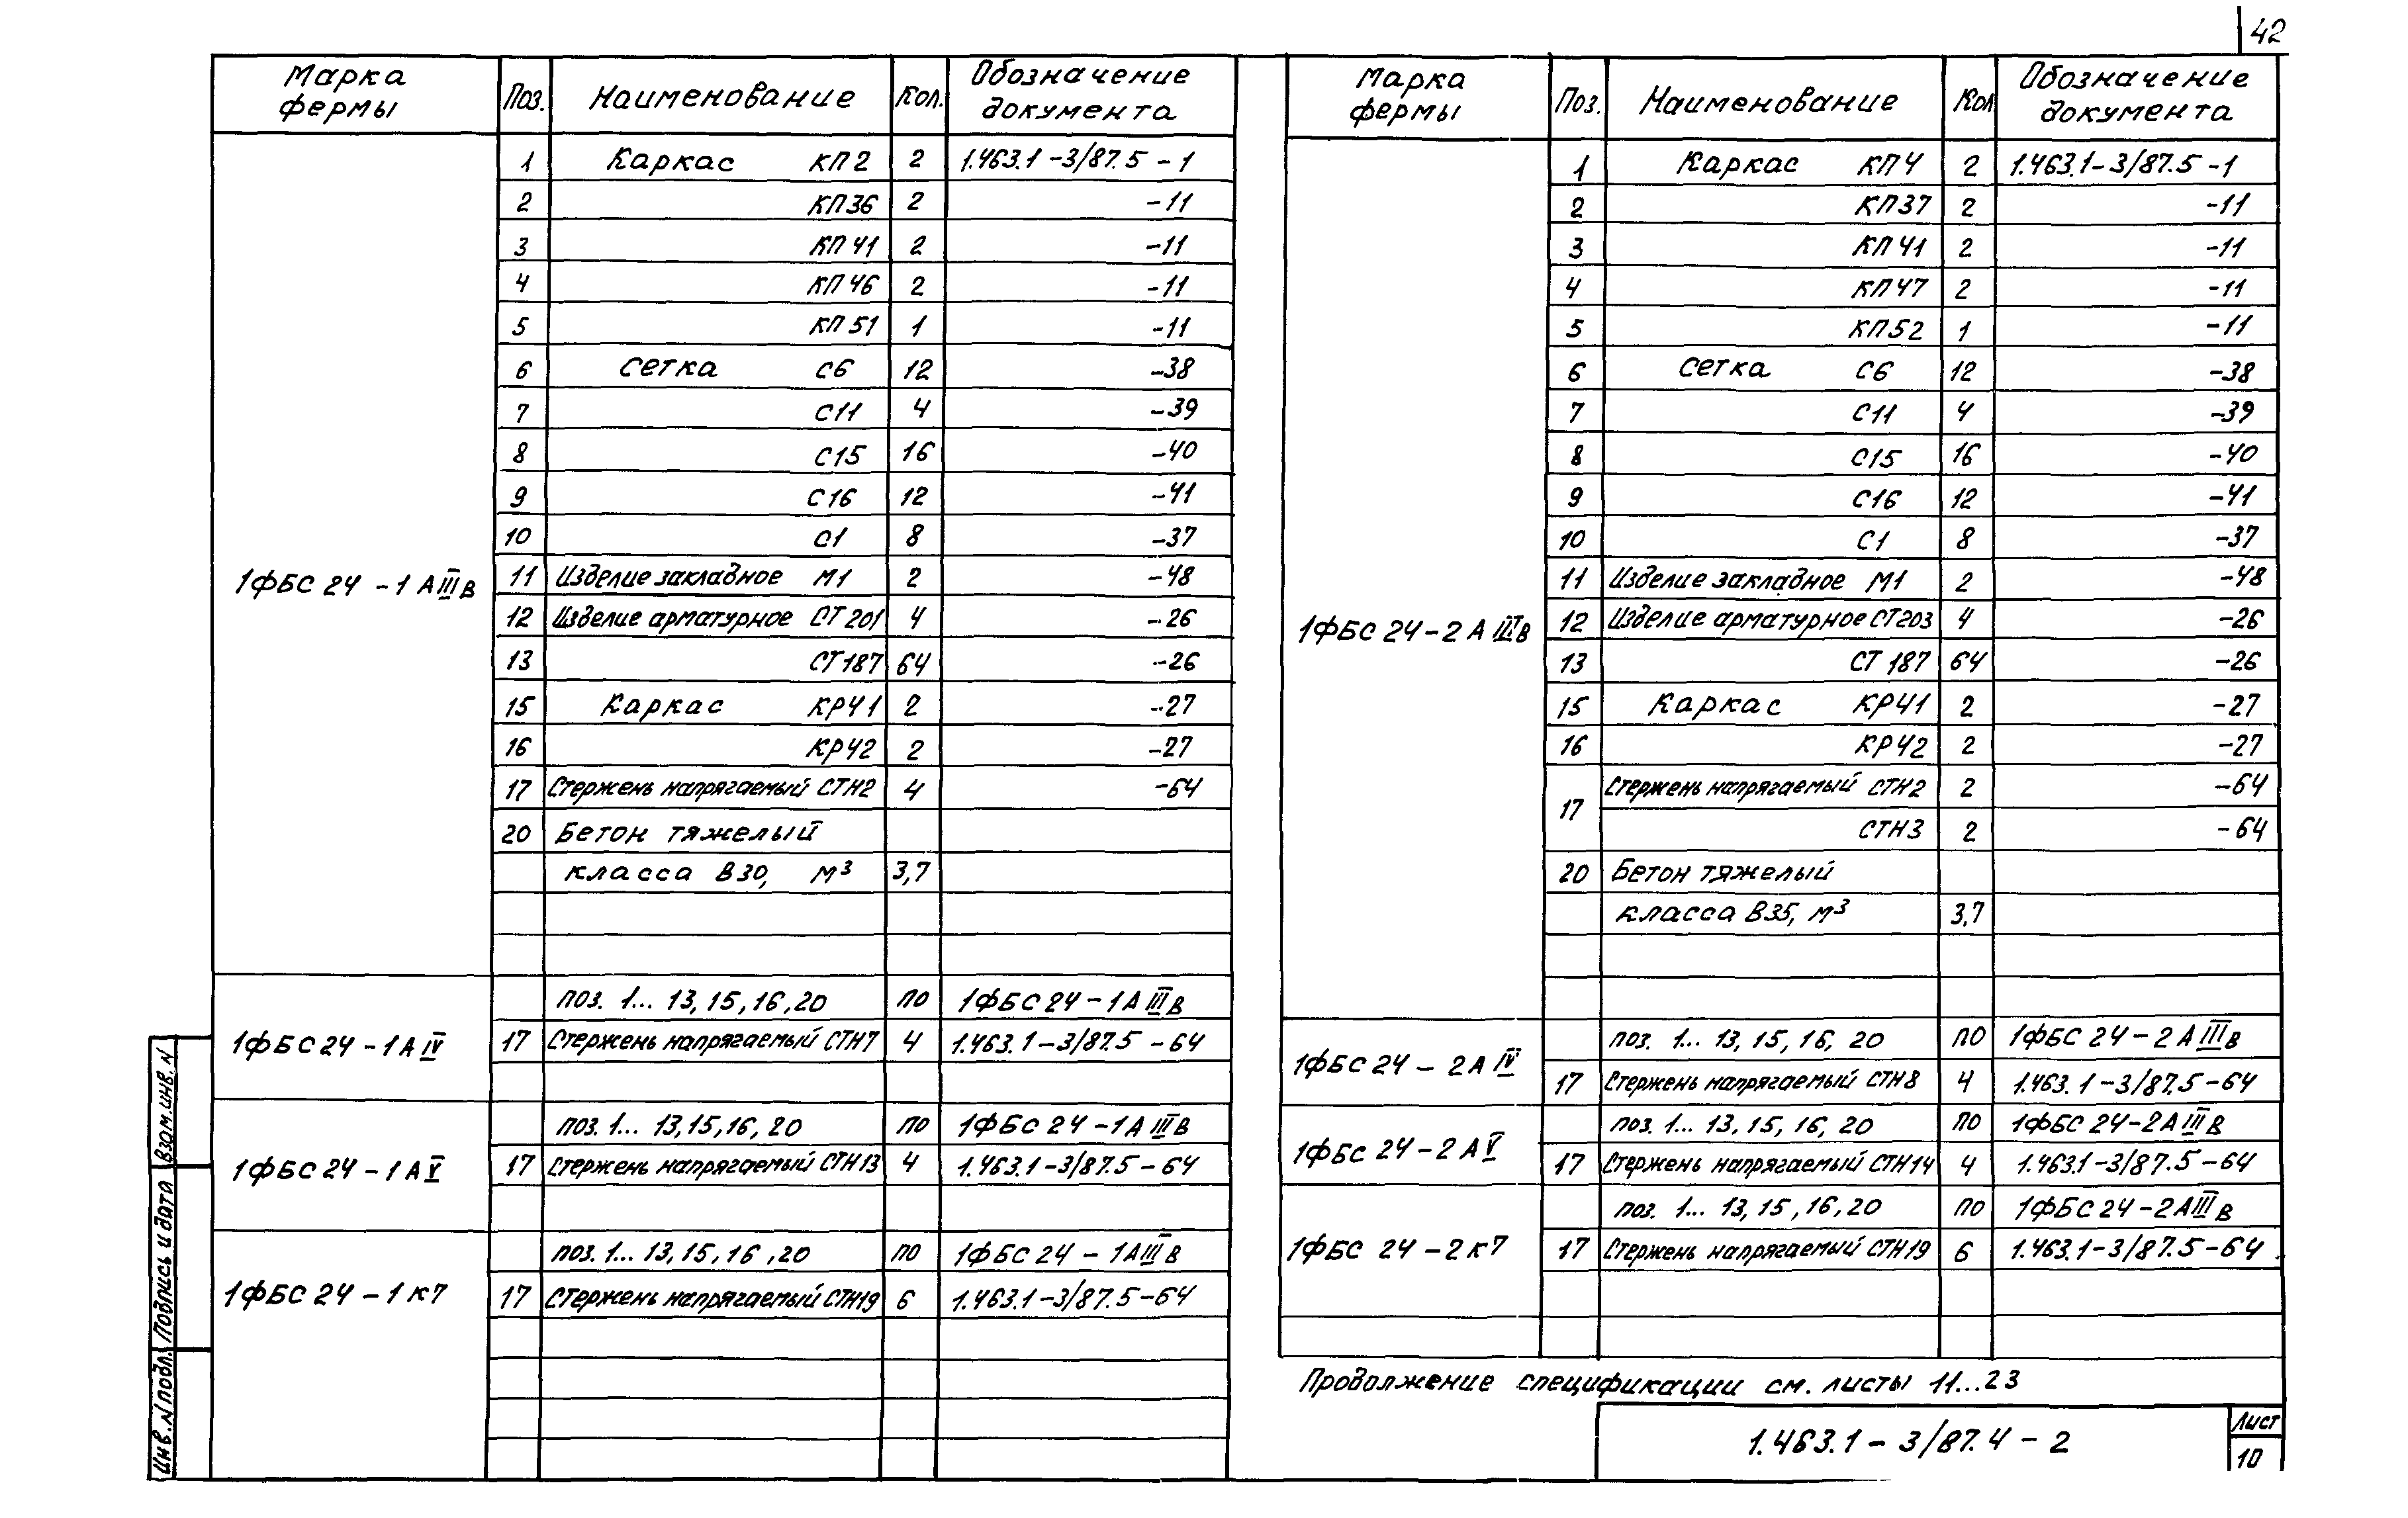 42
Марка фермы Поз. Наименование Кол. Обозначение документа
1ФБС 24 - 1 АIIIв
1 Каркас КП2 2 1.463.1-3/87.5 - 1
2 КП36 2 -11
3 КП41 2 -11
4 КП46 2 -11
5 КП51 1 -11
6 Сетка С6 12 -38
7 С11 4 -39
8 С15 16 -40
9 С16 12 -41
10 С1 8 -37
11 Изделие закладное М1 2 -48
12 Изделие арматурное СТ201 4 -26
13 СТ187 64 -26
15 Каркас КР41 2 -27
16 КР42 2 -27
17 Стержень напрягаемый СТН2 4 -64
20 Бетон тяжелый
класса В30, м³ 3,7
1ФБС 24 - 1 АIV
поз. 1... 13, 15, 16, 20 по 1ФБС 24 - 1 АIIIв
17 Стержень напрягаемый СТН7 4 1.463.1-3/87.5 - 64
1ФБС 24 - 1 АV
поз. 1... 13, 15, 16, 20 по 1ФБС 24 - 1 АIIIв
17 Стержень напрягаемый СТН13 4 1.463.1-3/87.5 - 64
1ФБС 24 - 1 К7
поз. 1... 13, 15, 16, 20 по 1ФБС 24 - 1 АIIIв
17 Стержень напрягаемый СТН19 6 1.463.1-3/87.5 - 64
Марка фермы Поз. Наименование Кол Обозначение документа
1ФБС 24 - 2 АIIIв
1 Каркас КП4 2 1.463.1-3/87.5 - 1
2 КП37 2 -11
3 КП41 2 -11
4 КП47 2 -11
5 КП52 1 -11
6 Сетка С6 12 -38
7 С11 4 -39
8 С15 16 -40
9 С16 12 -41
10 С1 8 -37
11 Изделие закладное М1 2 -48
12 Изделие арматурное СТ203 4 -26
13 СТ187 64 -26
15 Каркас КР41 2 -27
16 КР42 2 -27
17 Стержень напрягаемый СТН2 2 -64
СТН3 2 -64
20 Бетон тяжелый
класса В35, м³ 3,7
1ФБС 24 - 2 АIV
поз. 1... 13, 15, 16, 20 по 1ФБС 24 - 2 АIIIв
17 Стержень напрягаемый СТН8 4 1.463.1-3/87.5 - 64
1ФБС 24 - 2 АV
поз. 1... 13, 15, 16, 20 по 1ФБС 24-2 АIIIв
17 Стержень напрягаемый СТН14 4 1.463.1-3/87.5 - 64
1ФБС 24 - 2 К7
поз. 1... 13, 15, 16, 20 по 1ФБС 24 - 2 АIIIв
17 Стержень напрягаемый СТН19 6 1.463.1-3/87.5 - 64
Продолжение спецификации см. листы 11...23
1.463.1 - 3/87.4 - 2
Лист
10
Взам. инв. N
Подпись и дата
Инв. N подл.